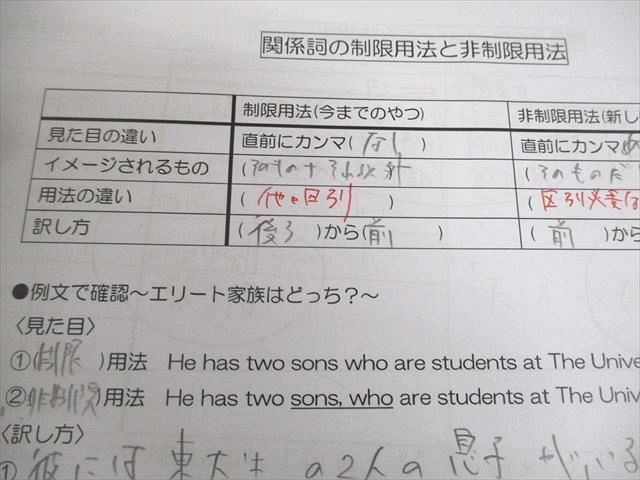 関係詞の制限用法と非制限用法
制限用法(今までのやつ) 非制限用法(新し
見た目の違い 直前にカンマ( なし ) 直前にカンマ( あ
イメージされるもの (そのもの+それ以外 (そのものだ
用法の違い ( 他と区別 ) ( 区別必要な
訳し方 ( 後ろ )から( 前 ) ( 前 )から
●例文で確認~エリート家族はどっち?~
〈見た目〉
①(制限 )用法 He has two sons who are students at The Unive
②(非制限)用法 He has two sons, who are students at The Univ
〈訳し方〉
① 彼には 東大生 の2人の 息子 がいる